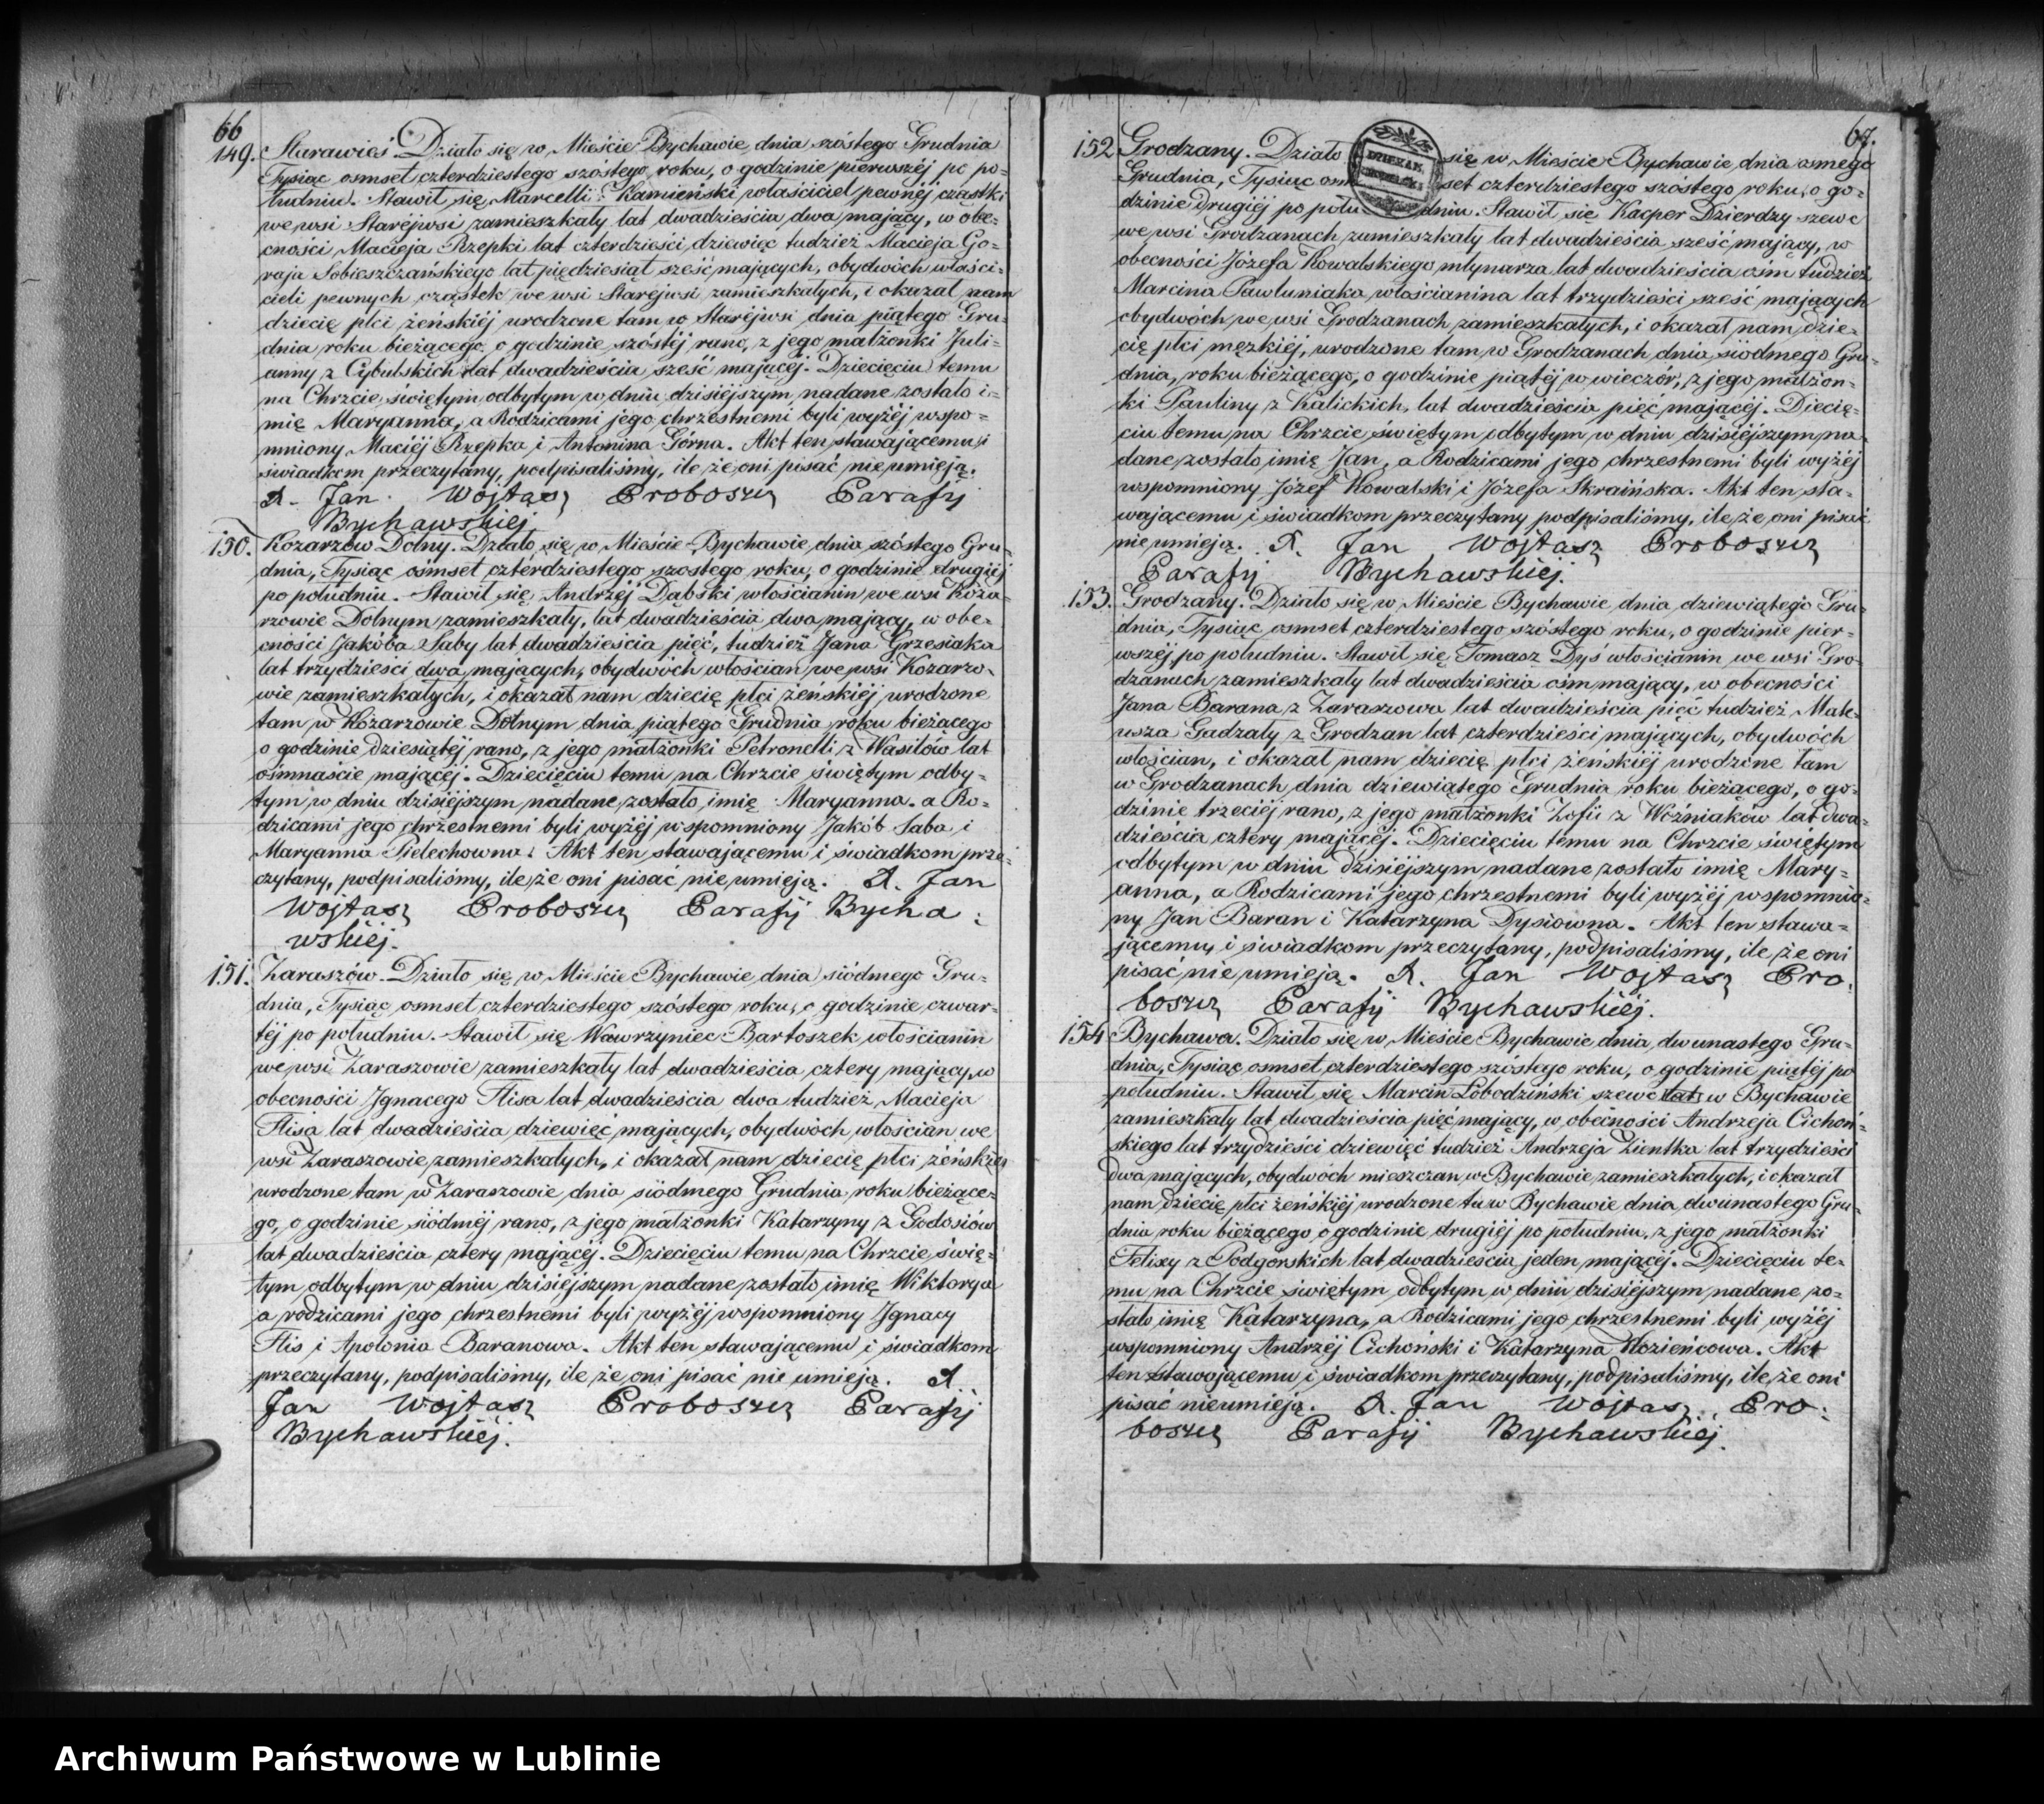 66
149. Starawieś. Działo się w Mieście Bychawie, dnia szóstego Grudnia
Tysiąc osmset czterdziestego szóstego roku, o godzinie pierwszéj po po=
łudniu. Stawił się Marcelli Kamieński właściciel pewnéj cząstki
we wsi Staréjwsi zamieszkały lat dwadzieścia dwa mający, w obe=
cności Macieja Rzepki lat czterdzieści dziewięc tudzież Macieja Go=
raja Sobieszczańskiego lat pięćdziesiąt sześć mających, obydwóch właści=
cieli pewnych cząstek we wsi Staréjwsi zamieszkałych, i okazał nam
dziecię płci żeńskiéj urodzone tam w Staréjwsi dnia piątego Gru=
dnia roku bieżącego o godzinie szóstéj rano, z jego małżonki Juli=
anny z Cybulskich lat dwadzieścia sześć mającéj. Dziecięciu temu
na Chrzcie świętym odbytym w dniu dzisiéjszym nadane zostało i=
mię Maryanna, a Rodzicami jego chrzestnemi byli wyżéj wspo=
mniony Maciéj Rzepka i Antonina Górna. Akt ten stawającemu i
świadkom przeczytany, podpisaliśmy, ile że oni pisać nie umieją.
X. Jan Wójtasz Proboszcz Parafij
Bychawskiej
150. Kozarzów Dolny. Działo się w Mieście Bychawie, dnia szóstego Gru=
dnia, Tysiąc ośmset czterdziestego szostego roku, o godzinie drugiéj
po południu. Stawił się Andrzéj Dąbski włościanin we wsi Koza=
rzowie Dolnym zamieszkały, lat dwadzieścia dwa mający, w obe=
cności Jakóba Saby lat dwadzieścia pięć, tudzież Jana Grzesiaka
lat trzydzieści dwa mających, obydwóch włościan we wsi Kozarzo=
wie zamieszkałych, i okazał nam dziecię płci żeńskiéj urodzone
tam w Kozarzowie Dolnym dnia piątego Grudnia roku bieżącego
o godzinie dziesiątéj rano, z jego małżonki Petronelli z Wasilów lat
ośmnaście mającéj. Dziecięciu temu na Chrzcie świętym odby=
tym w dniu dzisiéjszym nadane zostało imię Maryanna. a Ro=
dzicami jego chrzestnemi byli wyżéj wspomniony Jakób Saba i
Maryanna Pielechowna. Akt ten stawającemu i świadkom prze=
czytany, podpisaliśmy, ile że oni pisać nie umieją. X. Jan
Wojtasz Proboszcz Parafij Bycha=
wskiej.
151. Zaraszów. Działo się w Mieście Bychawie, dnia siódmego Gru=
dnia, Tysiąc osmset czterdziestego szóstego roku, o godzinie czwar=
téj po południu. Stawił się Wawrzyniec Bartoszek włościanin
we wsi Zaraszowie zamieszkały lat dwadzieścia cztery mający, w
obecności Ignacego Flisa lat dwadzieścia dwa tudzież Macieja
Flisa lat dwadzieścia dziewięć mających, obydwóch włościan we
wsi Zaraszowie zamieszkałych, i okazał nam dziecię płci żeńskiéj
urodzone tam w Zaraszowie dnia siódmego Grudnia roku bieżące=
go, o godzinie siódméj rano, z jego małżonki Katarzyny z Godosiów
lat dwadzieścia cztery mającéj. Dziecięciu temu na Chrzcie świę=
tym odbytym w dniu dzisiéjszym nadane zostało imię Wiktorya
a rodzicami jego chrzestnemi byli wyżéj wspomniony Ignacy
Flis i Apolonia Baranowa. Akt ten stawającemu i świadkom
przeczytany, podpisaliśmy, ile że oni pisać nie umieją. X.
Jan Wojtasz Proboszcz Parafij
Bychawskiéj.
67.
152 Grodzany. Działo się w Mieście Bychawie dnia osmego
Grudnia, Tysiąc osmset czterdziestego szóstego roku, o go=
dzinie drugiéj po południu. Stawił się Kacper Dzierdzy szewc
we wsi Grodzanach zamieszkały lat dwadzieścia sześć mający, w
obecności Józefa Kowalskiego młynarza lat dwadzieścia ośm tudzież
Marcina Pawluniaka włościanina lat trzydzieści sześć mających
obydwoch we wsi Grodzanach zamieszkałych, i okazał nam dzie=
cię płci męzkiéj, urodzone tam w Grodzanach dnia siódmego Gru=
dnia, roku bieżącego, o godzinie piątéj w wieczór, z jego małżon=
ki Pauliny z Kalickich, lat dwadzieścia pięć mającéj. Diecię=
ciu temu na Chrzcie świętym odbytym w dniu dzisiéjszym na=
dane zostało imię Jan, a Rodzicami jego chrzestnemi byli wyżéj
wspomniony Józef Kowalski i Józefa Skraińska. Akt ten sta=
wającemu i świadkom przeczytany podpisaliśmy, ile że oni pisać
nie umieją. X. Jan Wojtasz Proboszcz
Parafij Bychawskiej.
153. Grodzany. Działo się w Mieście Bychawie dnia dziewiątego Gru=
dnia, Tysiąc osmset czterdziestego szóstego roku, o godzinie pier=
wszéj po południu. Stawił się Tomasz Dyś włościanin we wsi Gro=
dzanach zamieszkały lat dwadzieścia ośm mający, w obecności
Jana Barana z Zararzowa lat dwadzieścia pięć tudzież Mate=
usza Gadzały z Grodzan lat czterdzieści mających, obydwóch
włościan, i okazał nam dziecię płci żeńskiéj urodzone tam
w Grodzanach dnia dziewiątego Grudnia roku bieżącego, o go=
dzinie trzeciéj rano, z jego małżonki Zofii z Woźniaków lat dwa=
dzieścia cztery mającéj. Dziecięciu temu na Chrzcie świętym
odbytym w dniu dzisiéjszym nadane zostało imię Mary=
anna, a Rodzicami jego chrzestnemi byli wyżéj wspomnio=
ny Jan Baran i Katarzyna Dysiowna. Akt ten stawa=
jącemu, i świadkom przeczytany, podpisaliśmy, ile że oni
pisać nie umieją. X. Jan Wojtasz Pro=
boszcz Parafij Bychawskiéj.
154 Bychawa. Działo się w Mieście Bychawie dnia dwunastego Gru=
dnia, Tysiąc osmset czterdziestego szóstego roku, o godzinie piątéj po
południu. Stawił się Marcin Łobodziński szewc lat w Bychawie
zamieszkały lat dwadzieścia pięć mający, w obecności Andrzeja Cichoń=
skiego lat trzydzieści dziewięć tudzież Andrzeja Zientka lat trzydzieści
dwa mających, obydwóch mieszczan w Bychawie zamieszkałych, i okazał
nam dziecię płci żeńskiéj urodzone tu w Bychawie dnia dwunastego Gru=
dnia roku bieżącego o godzinie drugiéj po południu, z jego małżonki
Felixy z Podgorskich lat dwadzieścia jeden mającéj. Dziecięciu te=
mu na Chrzcie świętym odbytym w dniu dzisiéjszym nadane zo=
stało imię Katarzyna, a Rodzicami jego chrzestnemi byli wyżéj
wspomniony Andrzéj Cichoński i Katarzyna Kozieńcowa. Akt
ten stawającemu i świadkom przeczytany, podpisaliśmy, ile że oni
pisać nieumieją. X. Jan Wojtasz Pro=
boszcz Parafij Bychawskiéj.
Archiwum Państwowe w Lublinie